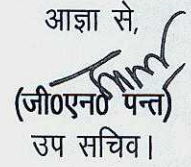 आज्ञा से,
(जी०एन० पन्त)
उप सचिव।